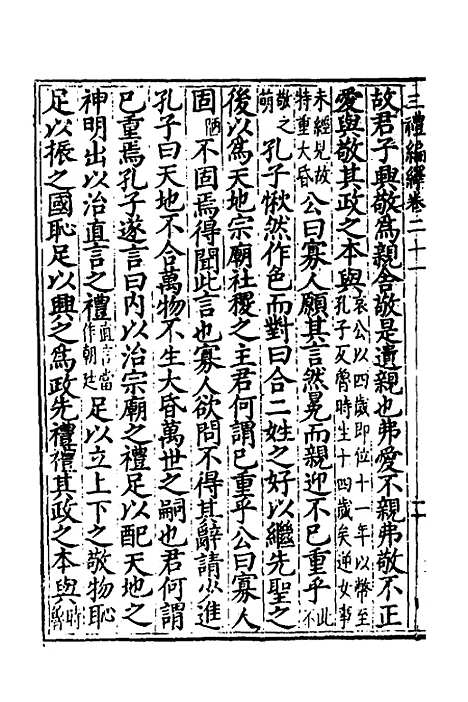 三禮編繹卷二十一 二
故君子興敬為親舍敬是遺親也弗愛不親弗敬不正
愛與敬其政之本與哀公以四歲即位十一年以幣至孔子反魯時生十四歲矣逆女事
未經見故特重大昏公曰寡人願其言然冕而親迎不已重乎此不
敬之萌孔子愀然作色而對曰合二姓之好以繼先聖之
後以為天地宗廟社稷之主君何謂已重乎公曰寡人
固陋不固焉得聞此言也寡人欲問不得其辭請少進
孔子曰天地不合萬物不生大昏萬世之嗣也君何謂
已重焉孔子遂言曰內以治宗廟之禮足以配天地之
神明出以治直言之禮直言當作朝廷足以立上下之敬物恥
足以振之國恥足以興之為政先禮禮其政之本與時